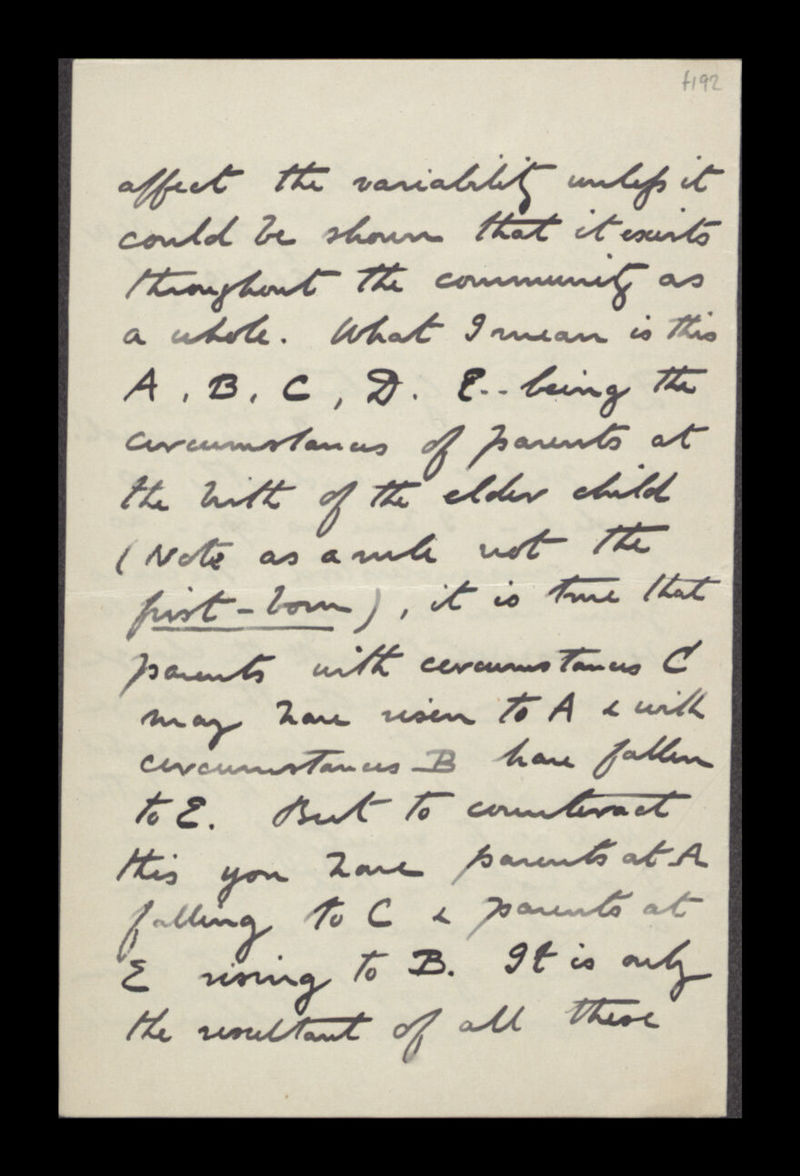 f192
affect the variability unless it
could be shown that it exists
throughout the community as
a whole. What I mean is this
A, B, C, D. E.. being the
circumstances of parents at
the birth of the elder child
(Note as a rule not the
first-born), it is true that
parents with circumstances C
may have risen to A & with
circumstances B have fallen
to E. But to counteract
this you have parents at A
falling to C & parents at
E rising to B. It is only
the resultant of all these